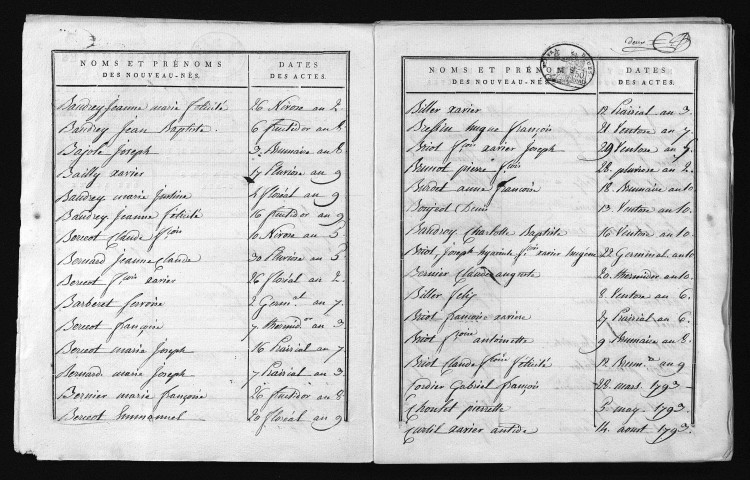 NOMS ET PRÉNOMS DATES
DES NOUVEAU-NÉS. DES ACTES.
Baudrey Jeanne marie félicité 26 Nivose an 2.
Baudrey Jean Baptiste. 6 fructidor an 8.
Joseph Brumaire an 8
Bailly xavier 17 Pluviose an 9
Baudrey marie Justine 4 floréal an 9
Baudrey Jeanne félicité 16 fructidor an 9
Bercot Claude fcois 10 Nivose an 5
Bernard Jeanne Claude 30 Pluviose an 5
Bercot fcois xavier 26 floréal an 2.
Barberet ferreine 2 Germal an 7.
Bercot françoise 7 thermidor an 3
Bercot marie Joseph 16 Prairial an 7
Bernard marie Joseph 7 Prairial an 3
Bernier marie françoise 26 fructidor an 8
Bercot Emmanuel 20 floréal an 9
deux
NOMS ET PRÉNOMS DATES
DES NOUVEAU-NÉS DES ACTES.
Biller xavier 12 Prairial an 3.
hugue françois 21 Ventose an 7.
Briot fcois xavier Joseph 29 Ventose an 7.
Brunot pierre fcois 28. pluviose an 2.
Burdet anne françoise 18. Brumaire an 10.
Denis 13. Ventose an 10.
Baudrey Charlotte Baptiste 16 Ventose an 10.
Briot, Joseph hyacinte fcois xavier hugene 22 Germinal an 10
Bernier Claude auguste 20 thermidor an 10.
Biller felix 8. Ventose an 6.
Briot françoise xavière 27 Prairial an 6.
Briot fcoise antoinette 9 Brumaire an 8.
Briot Claude fcoise félicité 12 Brumre an 9
Cordier Gabriel françois 28. mars 1793
Choulet pierrette 5 may. 1793.
Curtil xavier antide 14. aout 1793.